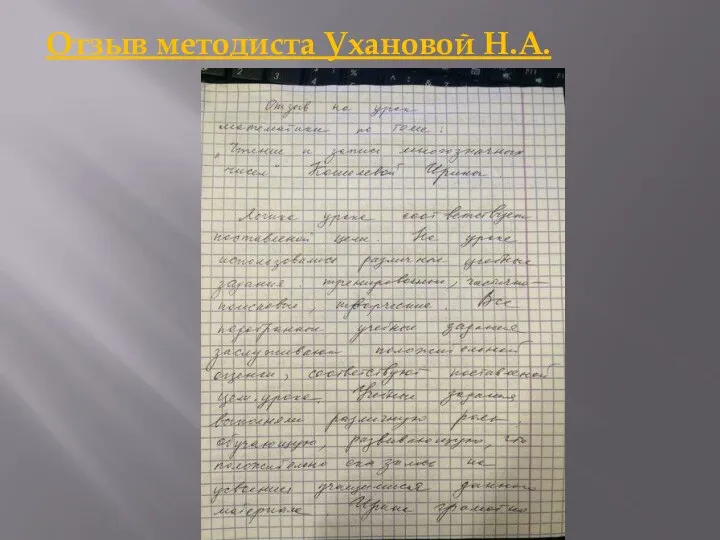 Отзыв методиста Ухановой Н.А.
Отзыв на урок
математики по теме:
"Чтение и запись многозначных
чисел" Кошелевой Ирины.
Логика урока соответствует
поставленой цели. На уроке
использовались различные учебные
задания: тренировочные, частично-
поисковые, творческие. Все
подобранные учебные задания
заслуживают положительной
оценки, соответствуют поставленой
цели урока. Учебные задания
выполняли различную роль:
обучающую, развивающую, что
положительно сказалось на
усвоении учащимися данного
материала. Ирина грамотно